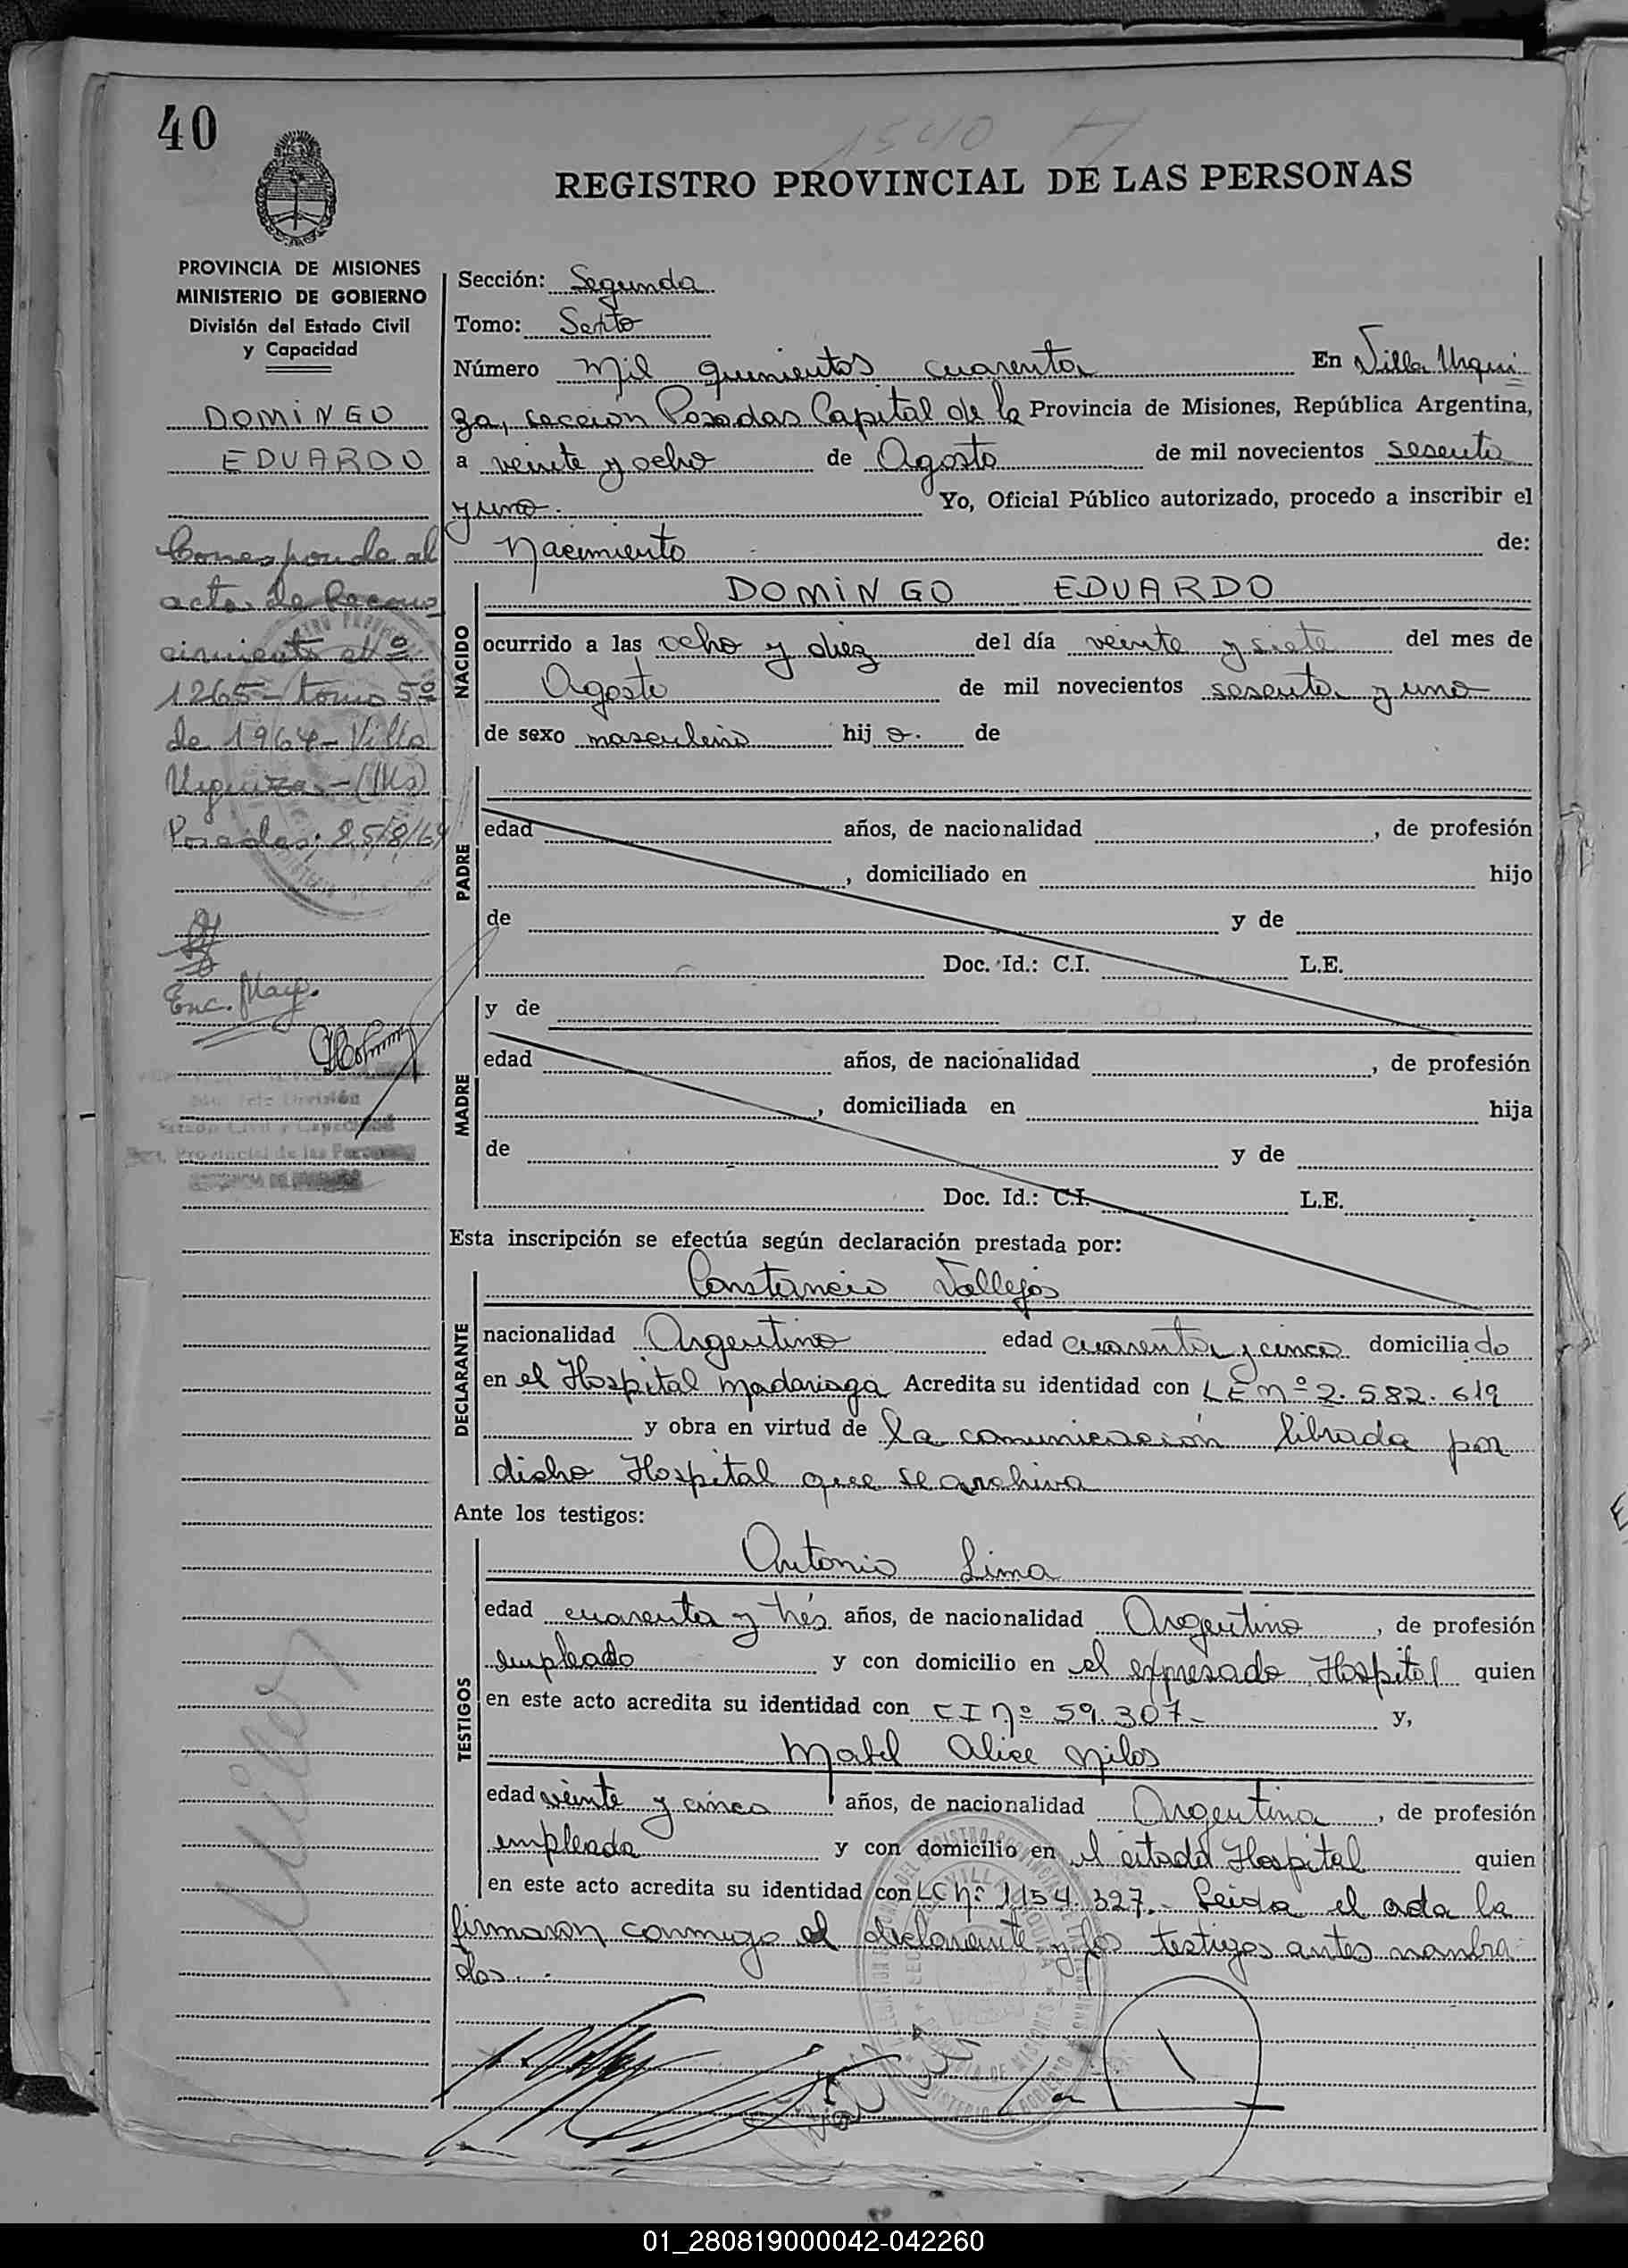 40
1540
REGISTRO PROVINCIAL DE LAS PERSONAS
PROVINCIA DE MISIONES
MINISTERIO DE GOBIERNO
División del Estado Civil
y Capacidad
DOMINGO
EDUARDO
Corresponde al
acta de Recono
cimiento Nº
1265 - tomo 5º
de 1964 - Villa
Urquiza - (Ms)
Posadas; 25/8/64
Enc. May.
División
Estado Civil y Capacidad
Provincial de las Personas
Sección: Segunda
Tomo: Sexto
Número mil quinientos cuarenta En Villa Urqui
za, seccion Posadas Capital de la Provincia de Misiones, República Argentina,
a veinte y ocho de Agosto de mil novecientos sesenta
y uno. Yo, Oficial Público autorizado, procedo a inscribir el
Nacimiento de:
NACIDO
DOMINGO EDUARDO
ocurrido a las ocho y diez del día veinte y siete del mes de
Agosto de mil novecientos sesenta y uno
de sexo masculino hij o. de
PADRE
edad años, de nacionalidad , de profesión
, domiciliado en hijo
de y de
Doc. Id.: C.I. L.E.
y de
MADRE
edad años, de nacionalidad , de profesión
, domiciliada en hija
de y de
Doc. Id.: C.I. L.E.
Esta inscripción se efectúa según declaración prestada por:
DECLARANTE
Constancio Vallejos
nacionalidad Argentino edad cuarenta y cinco domicilia do
en el Hospital Madariaga Acredita su identidad con LE nº 2.582.619
y obra en virtud de la comunicación librada por
dicho Hospital que se archiva
Ante los testigos:
TESTIGOS
Antonio Lima
edad cuarenta y trés años, de nacionalidad Argentino, de profesión
empleado y con domicilio en el expresado Hospital quien
en este acto acredita su identidad con CI nº 59.307- y,
Mabel Alice Milos
edad veinte y cinco años, de nacionalidad Argentina, de profesión
empleada y con domicilio en el citado Hospital quien
en este acto acredita su identidad con LC nº 1154.327.- Leida el acta la
firmaron conmigo el declarante y los testigos antes nombra
dos.
Milos
01_280819000042-042260